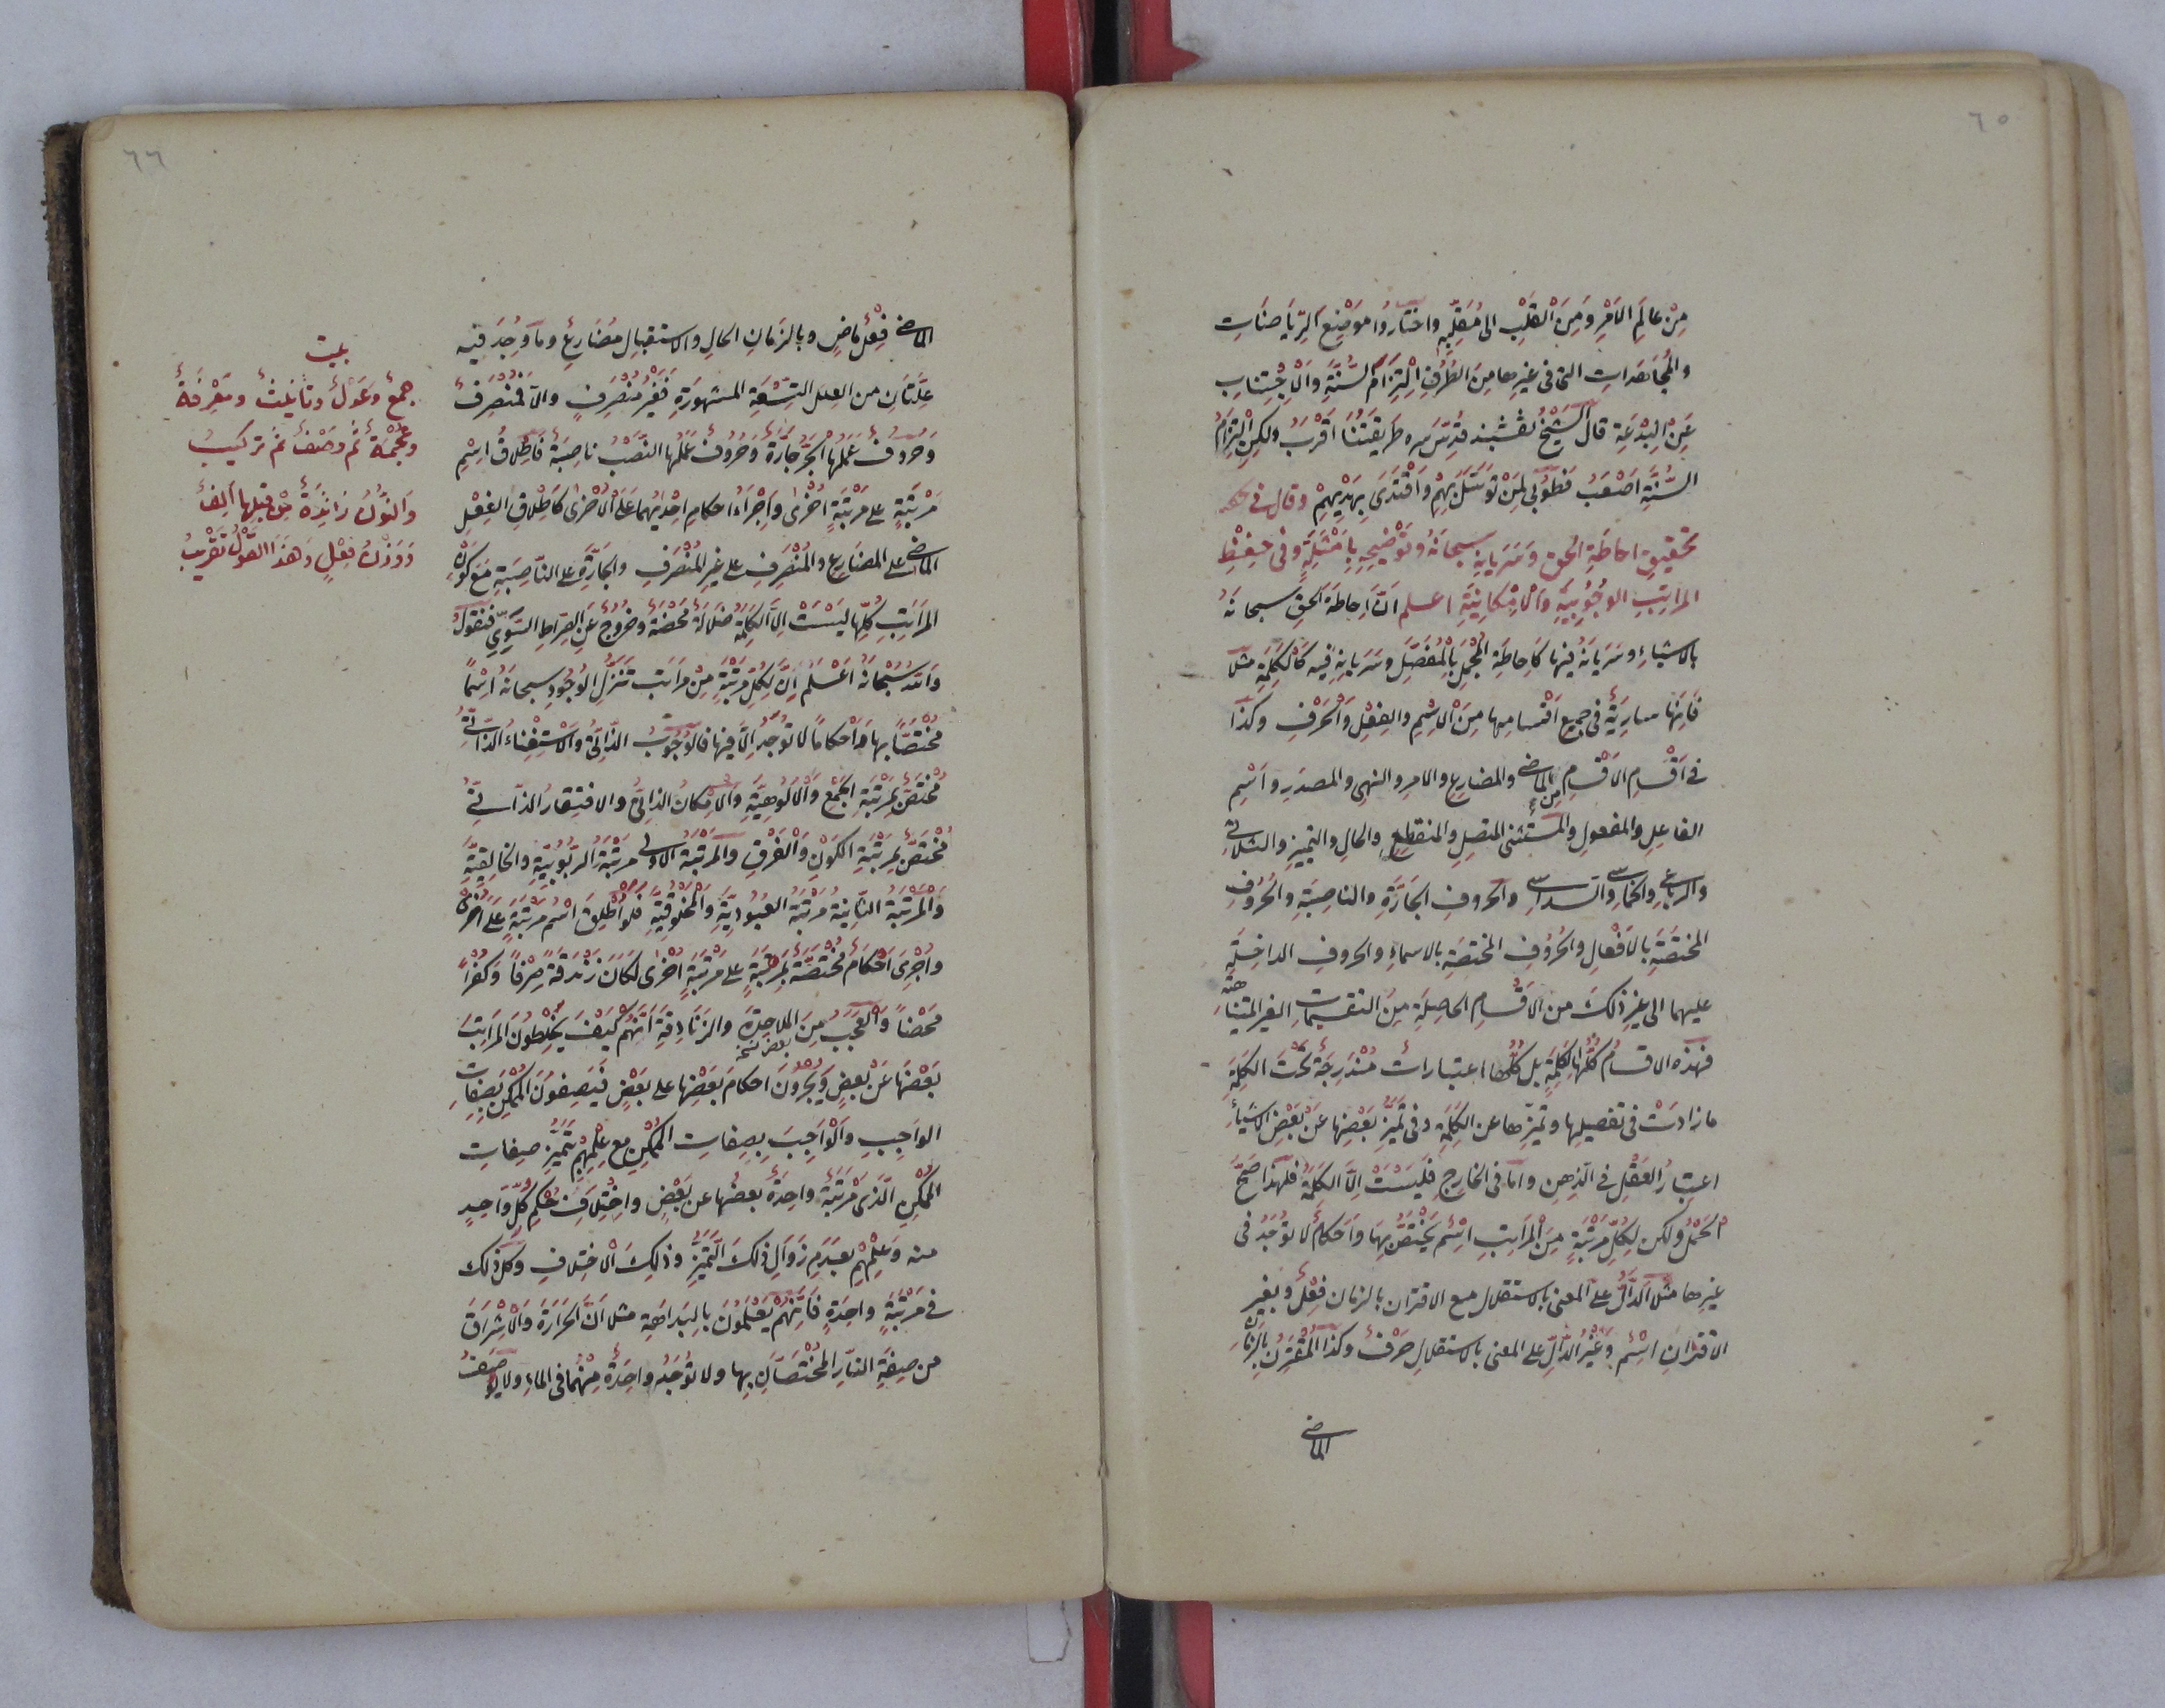 ٦٥
مِنْ عالَمِ الاَمْرِ وَمِنَ الْقَلْبِ الى مُقَلِّبِهِ واختارُوا موْضِعَ الرِّيَاضَاتِ
والمُجاهَدَاتِ التى فى غيرِها مِنَ الطُّرُقِ اِلْتِزَامَ السُّنَّةِ وَالْاِجْتِنابِ
عَنِ الْبِدْعَةِ قال الشَّيْخُ نقشبند قُدِّسَ سِره طَرِيقَتُنَا اَقْرَبُ ولكِنِ الْتِزَامُ
السُّنَّةِ اَصْعَبُ فَطُوْبٰى لِمَنْ تَوَسَّلَ بِهِمْ وَاقْتَدَى بِهَدْيِهِمْ وقال فى
تحقيقِ احاطةِ الحق وَسَرَيانِهِ سبحانَهُ وتَوْضيحِهِ بِاَمْثِلَةٍ وفى حِفْظِ
المراتِبِ الوجُوبِيَّةِ والاِمْكانِيَّةِ اعلم اَنَّ اِحاطَةَ الحقِ سبحانَهُ
بالاشياءِ وسَرَيانَهُ فيها كَاِحاطَةِ المُجْمَلِ بِالْمُفَصَّلِ وسَرَيانِهِ فيه كَالْكَلِمَةِ مثلًا
فَاِنَّهَا سارِيَةٌ فى جميعِ اَقْسامِها مِنَ الْاِسْمِ والفِعْلِ وَالْحَرْفِ وكذا
فى اَقْسامِ الاَقْسامِ مِنَ الماضى والمضارِعِ والامرِ والنهى والمصدَرِ واِسْمِ
الفاعِلِ والمفعولِ والمستثنى المتصِلِ والمنقطِعِ والحالِ والتميزِ والثلاثى
والرباعى والخماسى والسداسى والحروفِ الجَارَّةِ والناصِبَةِ والحُرُوفِ
المختصَّةِ بالاَفْعالِ والحُرُوفِ المختصَةِ بالاسماءِ والحروفِ الداخِلَةِ
عليهما الى غيرِ ذلكَ من الاقْسامِ الحاصِلَةِ مِنَ التقسيماتِ الغيرِ المتناهيَة
فهذه الاقسامُ كُلُّهَا الكَلِمَةِ بل كُلُّها اعتباراتٌ مُنْدَرِجَةٌ تَحْتَ الكَلِمَةِ
ما زادَتْ فى تفصيلِها وتميزِها عن الكَلِمَةِ وفى تَمَيُّزِ بَعْضِها عَنْ بَعْضِ الاشياءِ
اعتِبارُ العَقْلِ فى الذِهنِ واما فى الخارِجِ فَلَيْسَتْ اِلَّا الكَلِمَةُ فلهذا صَحَّ
الْحَمْلُ ولكن لِكُلِّ مَرْتَبَةٍ مِنَ الْمَراتِبِ اِسْمٌ يَخْتَصُّ بِهَا وَاَحكامٌ لا تُوْجَدُ فى
غيرِها مثلًا الدّالُّ عَلَى المعنى بالاستقلالِ مع الاقترانِ بالزمانِ فِعْلٌ وبغيرِ
الاقترانِ اِسْمٌ وغَيْرُ الدّالِّ على المعنى بالاستقلالِ حَرْفٌ وكذا المُقْتَرِنُ بالزمانِ
الماضى
٦٦
الماضى فِعْلٌ ماضٍ وبالزمانِ الحالِ والاستقبالِ مُضَارِعٌ وما وُجِدَ فيه
عِلَّتَانِ من العِلَلِ التِسْعَةِ المشهورَةِ فَغَيْرُ مُنْصَرِفٍ والّا فَمُنْصَرِفٌ
وَحُرُوفٌ عَمَلُهَا الجَرُّ جارَّةٌ وَحُرُوفٌ عَمَلُها النَّصْبُ ناصِبَةٌ فَاِطْلاقُ اِسْمِ
مَرْتَبَةٍ على مَرْتَبَةٍ اُخْرٰى وَاِجْرَاءُ احكامِ اِحْدٰيهُما عَلَى الْاُخْرٰى كَاِطْلاقِ الفِعْلِ
الماضى على المضَارِعِ والمُنْصَرِفِ على غيرِ المُنْصَرِفِ والجَارَّةِ على النَّاصِبَةِ مَعَ كَوْنِ
المَراتِبِ كُلِّها لَيْسَتْ اِلَّا الكَلِمَةَ ضَلالَةٌ مَحْضَةٌ وخُرُوجٌ عَنِ الصِرَاطِ السَّوِىِّ فنقولُ
وَاللهُ سُبْحَانَهُ اَعْلَمُ اِنَّ لِكُلِّ مَرْتَبَةٍ مِنْ مَراتِبِ تَنَزُّلِ الوُجُودِ سبحانَهُ اِسْمًا
مُخْتَصًّا بها وَاَحْكامًا لا تُوْجَدُ اِلَّا فيها فَالوُجُوبُ الذّاتِىُّ والاِسْتِغْناءُ الذّاتِىُّ
مُخْتَصٌّ بِمَرْتَبَةِ الجَمْعِ وَالاُلُوهِيَّةِ والاِمْكانُ الذاتِىُّ والافتِقارُ الذاتِىُّ
مُخْتَصٌّ بِمَرْتَبَةِ الكَوْنِ وَالْفَرْقِ والمَرْتَبَةُ الاولى مَرْتَبَةُ الرُّبُوبِيَّةِ والخالِقِيَّةِ
وَالْمَرْتَبَةُ الثَّانِيَةُ مَرْتَبَةُ العُبُودِيَّةِ والمَخْلُوقِيَّةِ فَلَوْ اُطْلِقَ اسْمُ مَرْتَبَةٍ عَلَى اُخْرٰى
واُجْرِىَ اَحْكامٌ مُخْتَصَّةٌ بِمَرْتَبَةٍ على مَرْتَبَةٍ اُخْرٰى لَكَانَ زَنْدَقَةً صِرْفًا وَكُفْرًا
مَحْضًا وَالْعَجَبُ مِنَ المَلاحِدَةِ والزَنَادِقَةِ اَنَّهُمْ كَيْفَ يُخْلِطُونَ المَراتِبَ
بعض نسخه
بَعْضَها عَنْ بَعْضٍ وَيُجْرُونَ احكامَ بَعْضِها على بَعْضٍ فَيَصِفُونَ المُمْكِنَ بِصِفاتِ
الواجِبِ وَالْوَاجِبَ بِصِفاتِ المُمْكِنِ مع عِلْمِهِمْ بِتَمَيُّزِ صِفاتِ
المُمْكِنِ الَّذى مَرْتَبَةٌ واحِدَةٌ بعضُها عن بَعْضٍ واخْتِلافِ حُكْمِ كُلِّ وَاحِدٍ
منه وَعِلْمِهِمْ بعَدَمِ زَوَالِ ذلكَ التَّمَيُّزِ وذلِكَ الاختِلافِ وكل ذلك
فى مَرْتَبَةٍ واحِدَةٍ فَاِنَّهُمْ يَعْلَمُونَ بالبَدَاهَةِ مثلًا اَنَّ الحَرَارَةَ وَالْاِشْرَاقَ
من صِفَةِ النّارِ المُخْتَصَّانِ بِها ولا تُوْجَدُ واحِدَةٌ مِنْهُما فى الماءِ ولا يوصَفُ
بيت
جمعٌ وعَدْلٌ وتأنيثٌ ومَعْرِفَةٌ
وعُجْمَةٌ ثُمَّ وصفٌ ثُمَّ تركيبُ
وَالنُّونُ زائِدَةٌ مِنْ قبلِها اَلِفٌ
وَوَزْنُ فِعْلٍ وَهٰذَا القَوْلُ تَقْريبُ